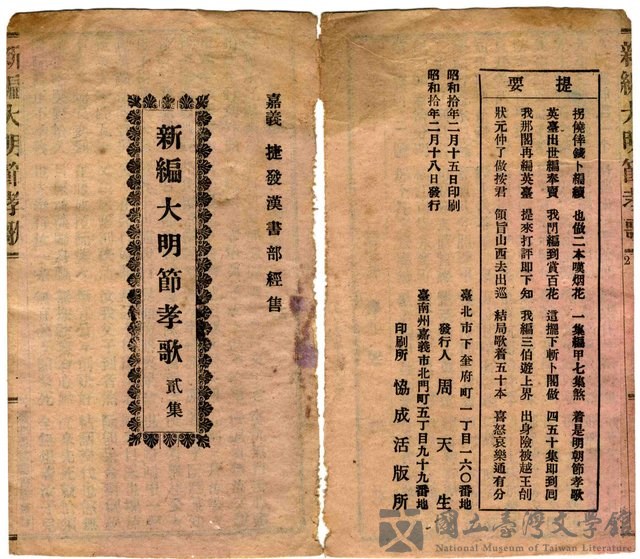 新編大明節孝歌 2
提要
拐僥倖錢卜編續 也做二本嘆烟花 一集編甲七集煞 着是明朝節孝歌
英臺出世編奉賣 我鬥編到賞百花 這擺下斬卜閣做 四五十集即到囘
我那閣再編英臺 提來打評即下知 我編三伯遊上界 出身險被越王刣
狀元仲了做按君 領旨山西去出巡 結局歌着五十本 喜怒哀樂通有分
昭和拾年二月十五日印刷
昭和拾年二月十八日發行
臺北市下奎府町一丁目一六〇番地
發行人 周天生
臺南州嘉義市北門町五丁目九十九番地
印刷所 協成活版所
嘉義 捷發漢書部經售
新編大明節孝歌 貳集
新編大明節孝歌
國立臺灣文學館
National Museum of Taiwan Literature